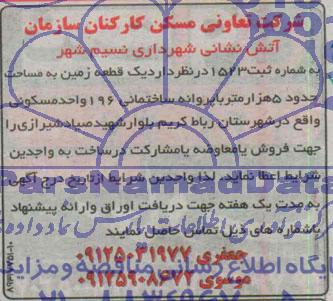 شرکت تعاونی مسکن کارکنان سازمان
آتش نشانی شهرداری نسیم شهر
به شماره ثبت ۱۵۲۳ در نظر دارد یک قطعه زمین به مساحت
حدود ۵ هزار متر با پروانه ساختمانی ۱۹۶ واحد مسکونی
واقع در شهرستان رباط کریم بلوار شهید صیاد شیرازی را
جهت فروش یا معاوضه یا مشارکت در ساخت به واجدین
شرایط اعطا نماید. لذا واجدین شرایط از تاریخ درج آگهی
به مدت یک هفته جهت دریافت اوراق و ارائه پیشنهاد
با شماره های ذیل تماس حاصل نمایند
جعفری ۰۹۱۲۵۰۳۱۹۷۷
موسوی ۰۹۱۲۵۹۰۸۶۷۷
ParsNamadData
پایگاه اطلاع رسانی مناقصه و مزایده